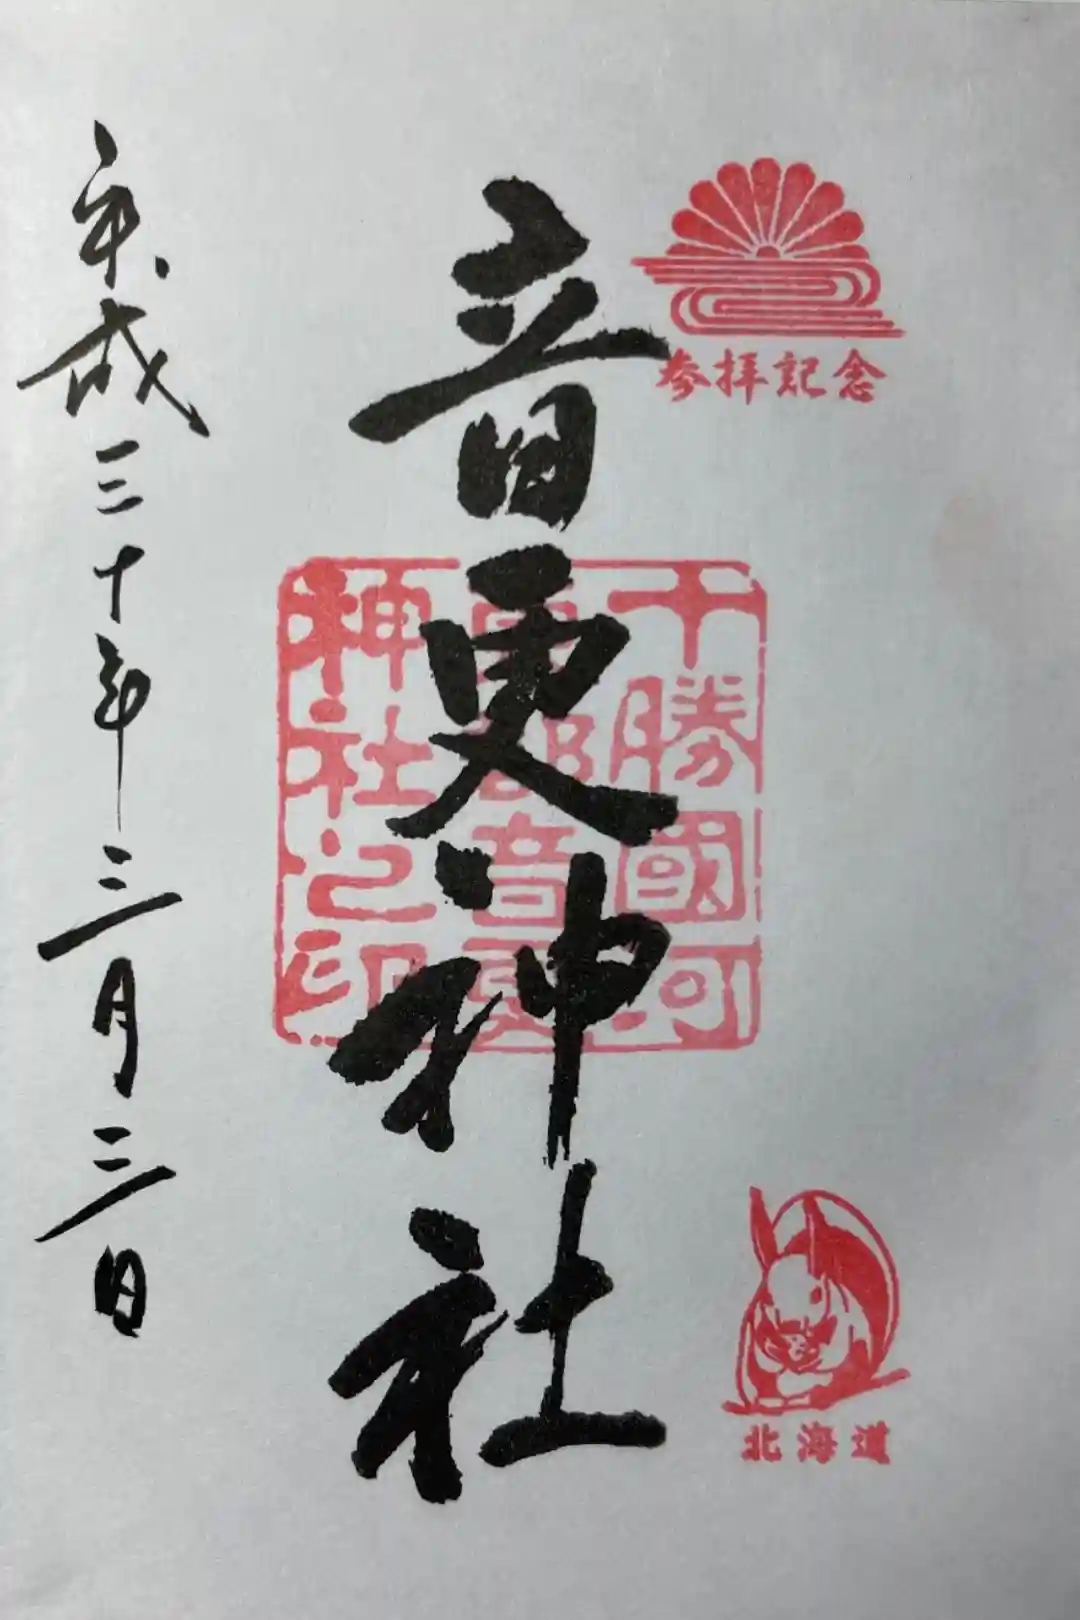 参拝記念
北海道
音更神社
十勝國河
東郡音更
神社之印
平成三十年三月三日